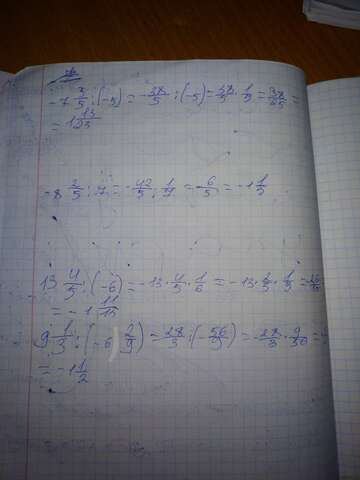 -7 3/5 : (-5) = -38/5 : (-5) = 38/5 · 1/5 = 38/25 =
= 1 13/25
-8 2/5 : 7 = -42/5 · 1/7 = -6/5 = -1 1/5
13 4/5 : (-6) = -13 · 4/5 · 1/6 = -13 · 2/5 · 1/3 =
= -1 11/15
9 1/3 : (-6 2/9) = 28/3 : (-56/9) = -28/3 · 9/56 =
= -1 1/2